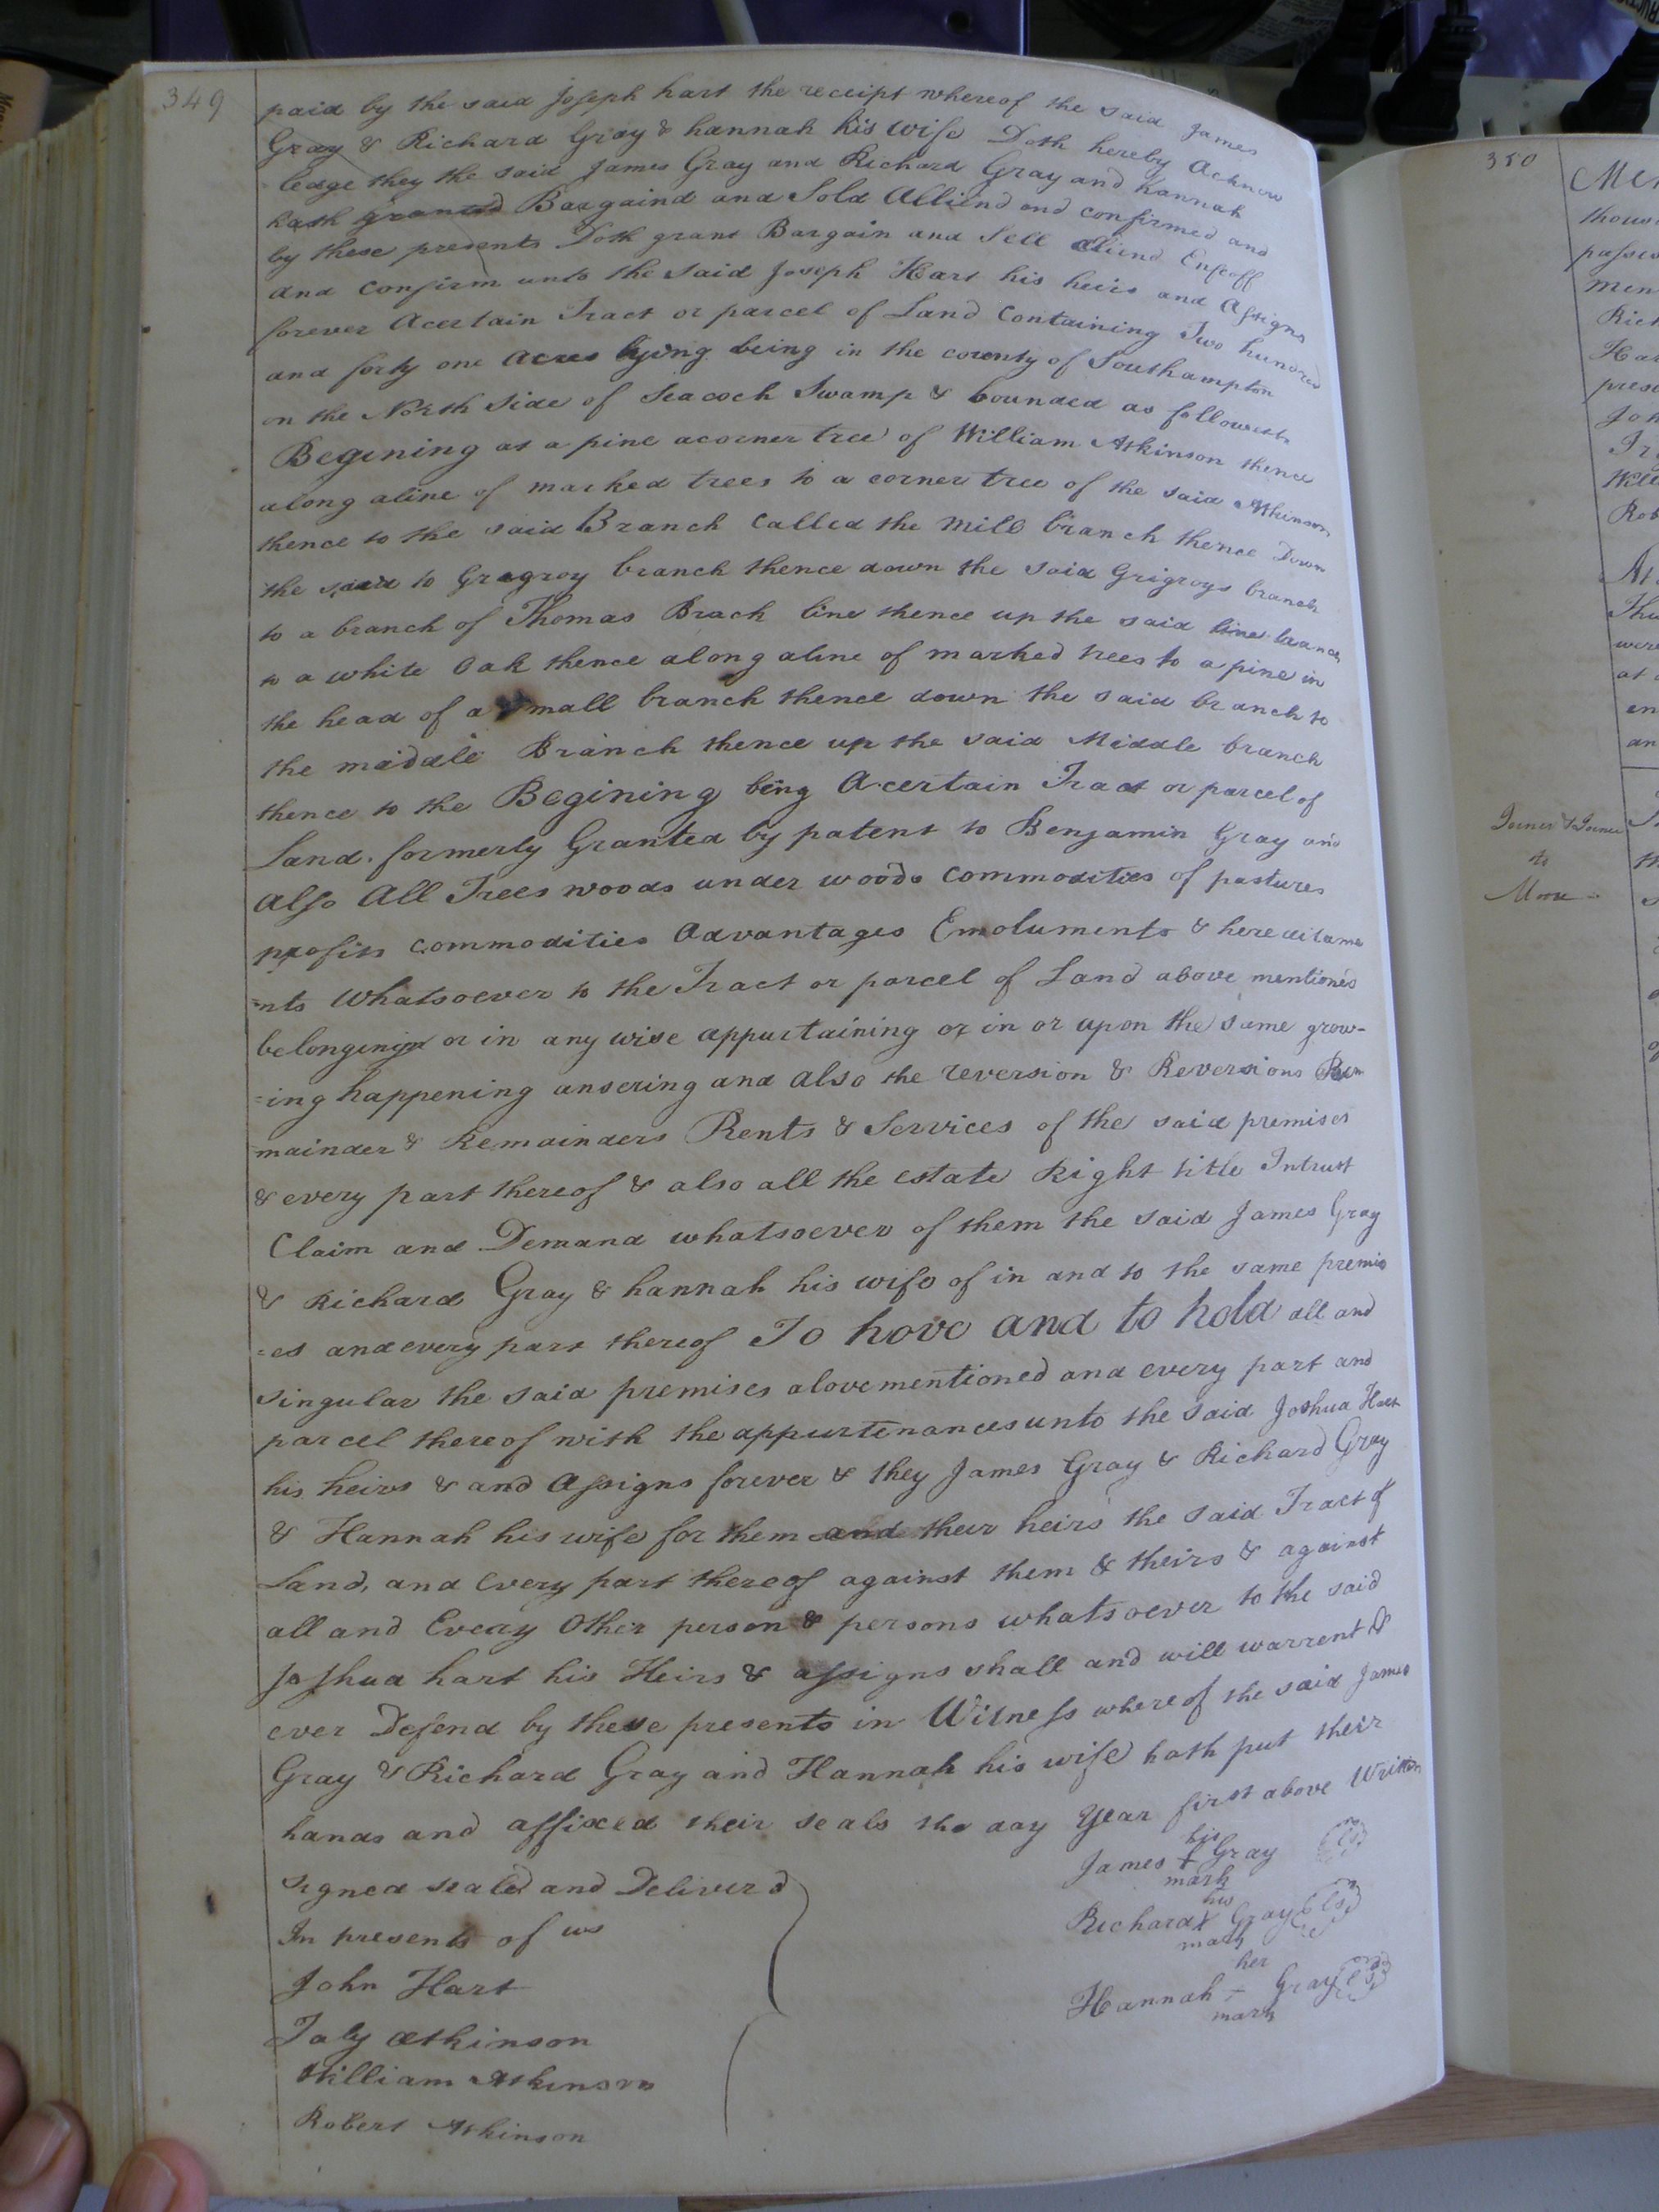 349
paid by the said Joseph hart the receipt whereof the said James
Gray & Richard Gray & hannah his wife Doth hereby Acknow
ledge they the said James Gray and Richard Gray and hannah
hath granted Bargaind and Sold Alliend and confirmed and
by these presents Doth grant Bargain and Sell Aliend Enfeoff
and confirm unto the said Joseph Hart his heirs and Assigns
forever Acertain Tract or parcel of Land Containing Two hundred
and forty one Acres lying being in the county of Southampton
on the North Side of Seacock Swamp & bounded as followeth
Begining at a pine acorner tree of William Atkinson thence
along aline of marked trees to a corner tree of the said Atkinson
thence to the said Branch Called the Mill branch thence Down
the said to Gregroy branch thence down the said Grigroys branch
to a branch of Thomas Brach line thence up the said line branch
to a white Oak thence along aline of marked trees to a pine in
the head of a small branch thence down the said branch to
the middle Branch thence up the said Middle branch
thence to the Begining being Acertain Tract or parcel of
Land formerly Granted by patent to Benjamin Gray and
Also All Trees woods under woods Commodities of pastures
profits commodities Advantages Emoluments & hereditame
=nts Whatsoever to the Tract or parcel of Land above mentioned
belonging or in any wise appurtaining or in or upon the same grow-
=ing happening ansering and also the reversion & Reversions Rem
mainder & Remainders Rents & Services of the said premises
& every part thereof & also all the estate Right title Intrust
Claim and Demand whatsoever of them the said James Gray
& Richard Gray & hannah his wife of in and to the same premis
=es and every part thereof To have and to hold all and
singular the said premises abovementioned and every part and
parcel thereof with the appurtenances unto the said Joshua Hart
his heirs & and Assigns forever & they James Gray & Richard Gray
& Hannah his wife for them and their heirs the said Tract of
Land, and Every part thereof against them & theirs & against
all and Every Other person & persons whatsoever to the said
Joshua hart his Heirs & assigns shall and will warrent &
ever Defend by these presents in Witness whereof the said James
Gray & Richard Gray and Hannah his wife hath put their
hands and affixed their seals the day Year first above Written
signed sealed and Deliverd
In presents of us
John Hart
Taly Atkinson
William Atkinson
Robert Atkinson
his
James + Gray (ls)
mark
his
Richard X Gray (ls)
mark
her
Hannah + Gray (ls)
mark
350
to